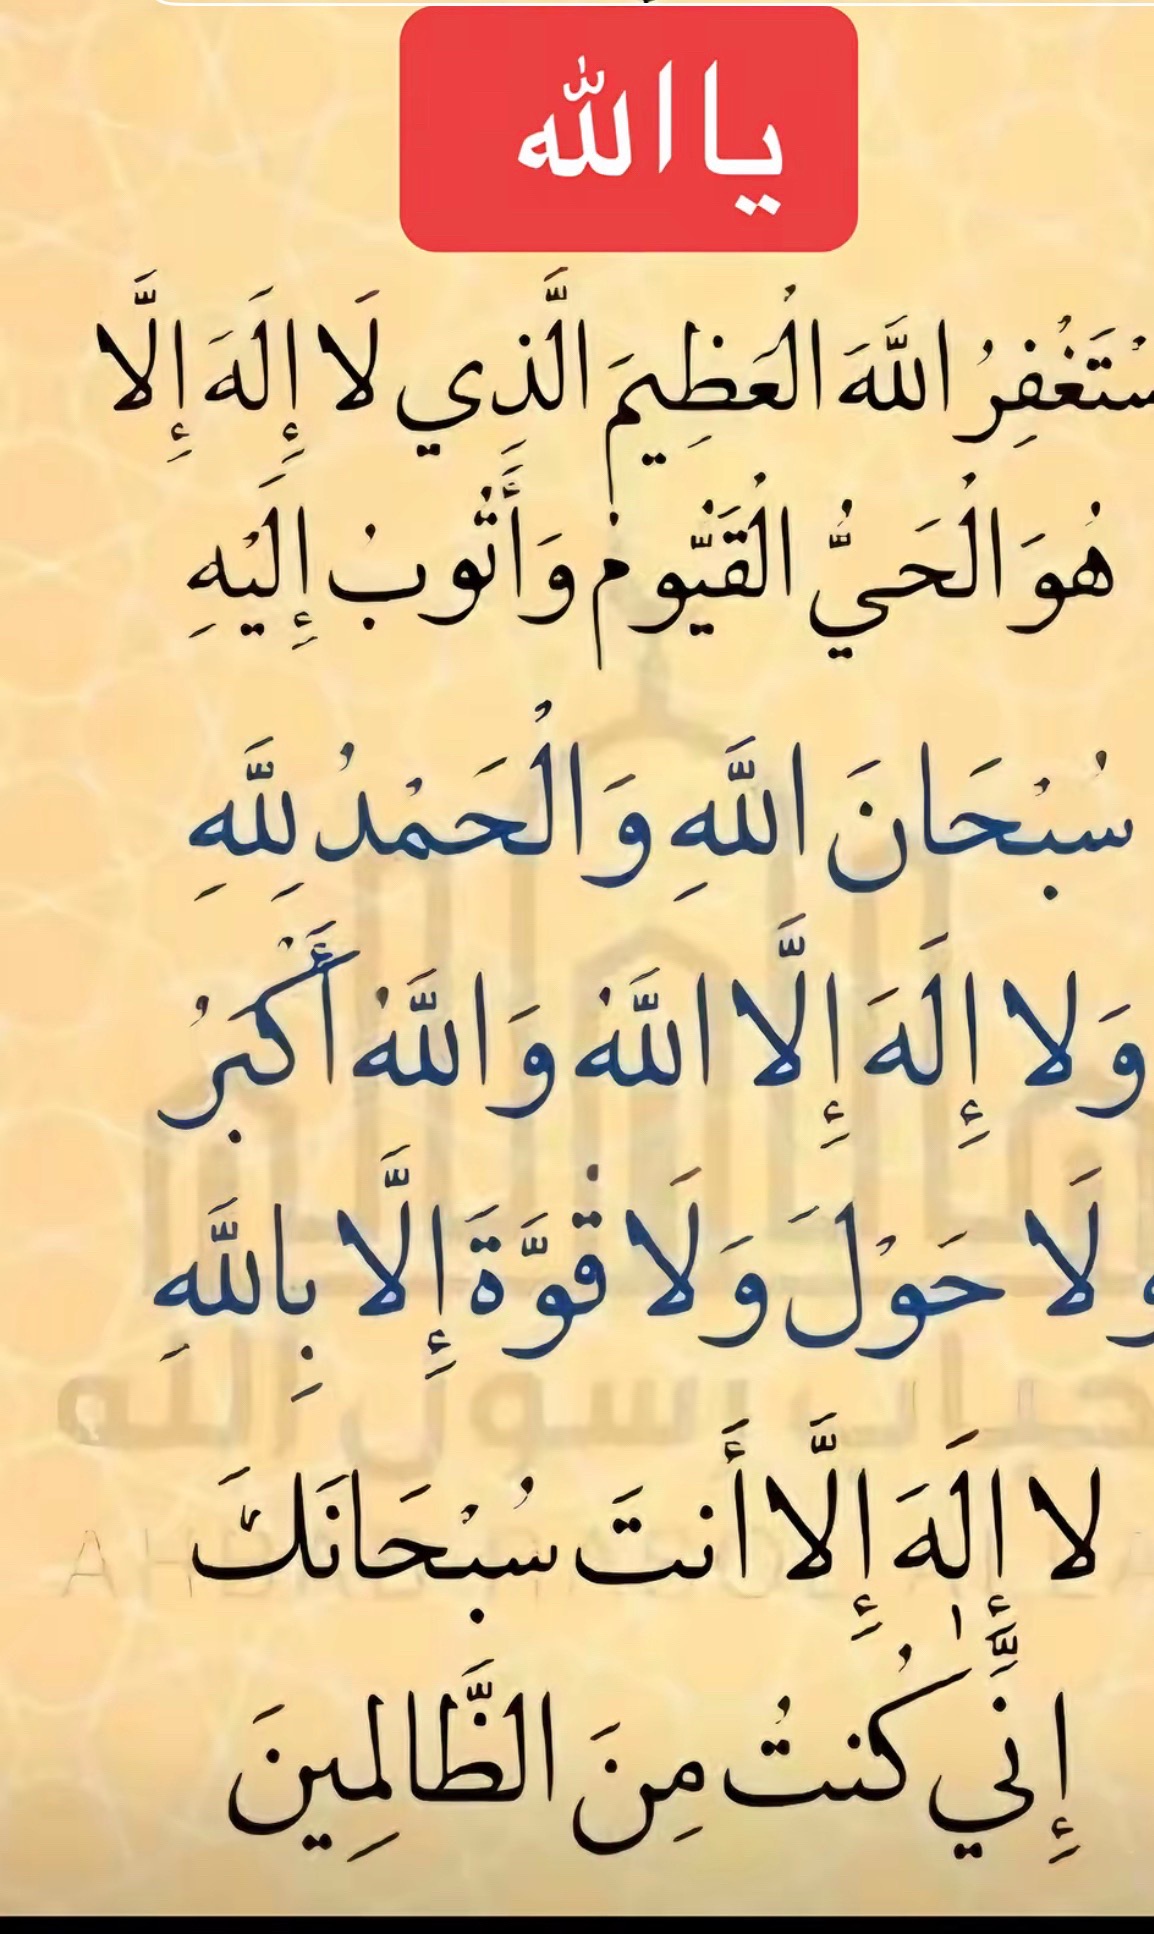 يا الله
ستَغْفِرُ اللَّهَ الْعَظِيمَ الَّذِي لَا إِلَهَ إِلَّا
هُوَ الْحَيُّ الْقَيُّومُ وَأَتُوبُ إِلَيْهِ
سُبْحَانَ اللَّهِ وَالْحَمْدُ لِلَّهِ
وَلا إِلَهَ إِلَّا اللَّهُ وَاللَّهُ أَكْبَرُ
وَلَا حَوْلَ وَلَا قُوَّةَ إِلَّا بِاللَّهِ
لا إِلَهَ إِلَّا أَنتَ سُبْحَانَكَ
إِنِّي كُنتُ مِنَ الظَّالِمِينَ